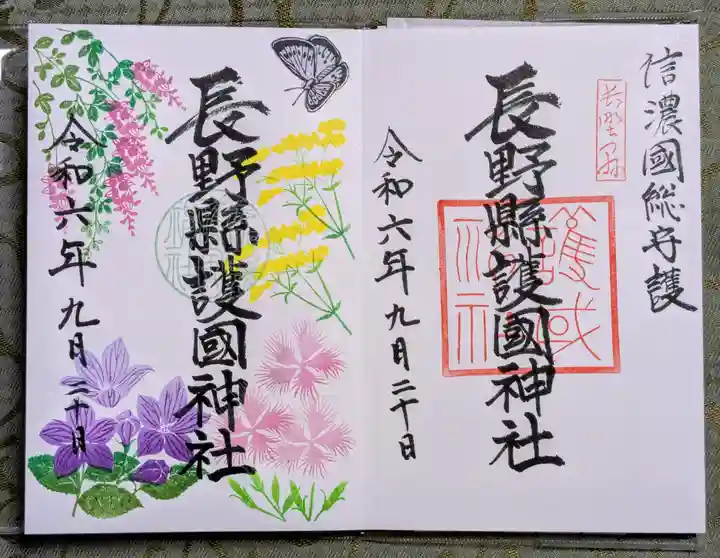 信濃國総守護
長野縣
長野縣護國神社
護國神社
令和六年九月二十日
長野縣護國神社
令和六年九月二十日